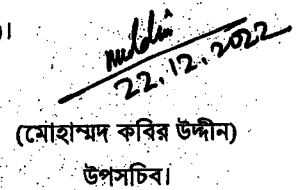 )।
22.12.2022
(মোহাম্মদ কবির উদ্দীন)
উপসচিব।